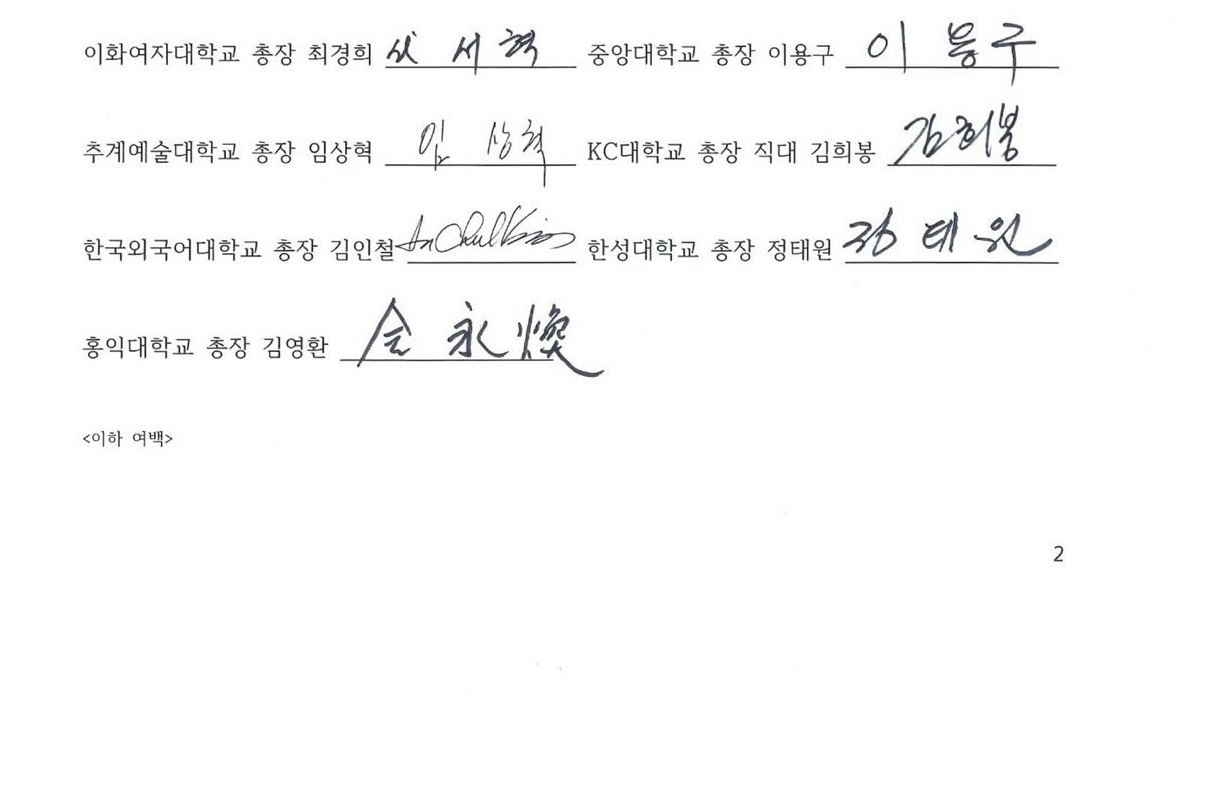 이화여자대학교 총장 최경희 서혁 중앙대학교 총장 이용구 이용구
추계예술대학교 총장 임상혁 임상혁 KC대학교 총장 직대 김희봉 김희봉
한국외국어대학교 총장 김인철 In Chul Kim 한성대학교 총장 정태원 정태원
홍익대학교 총장 김영환 金永煥
<이하 여백>
2